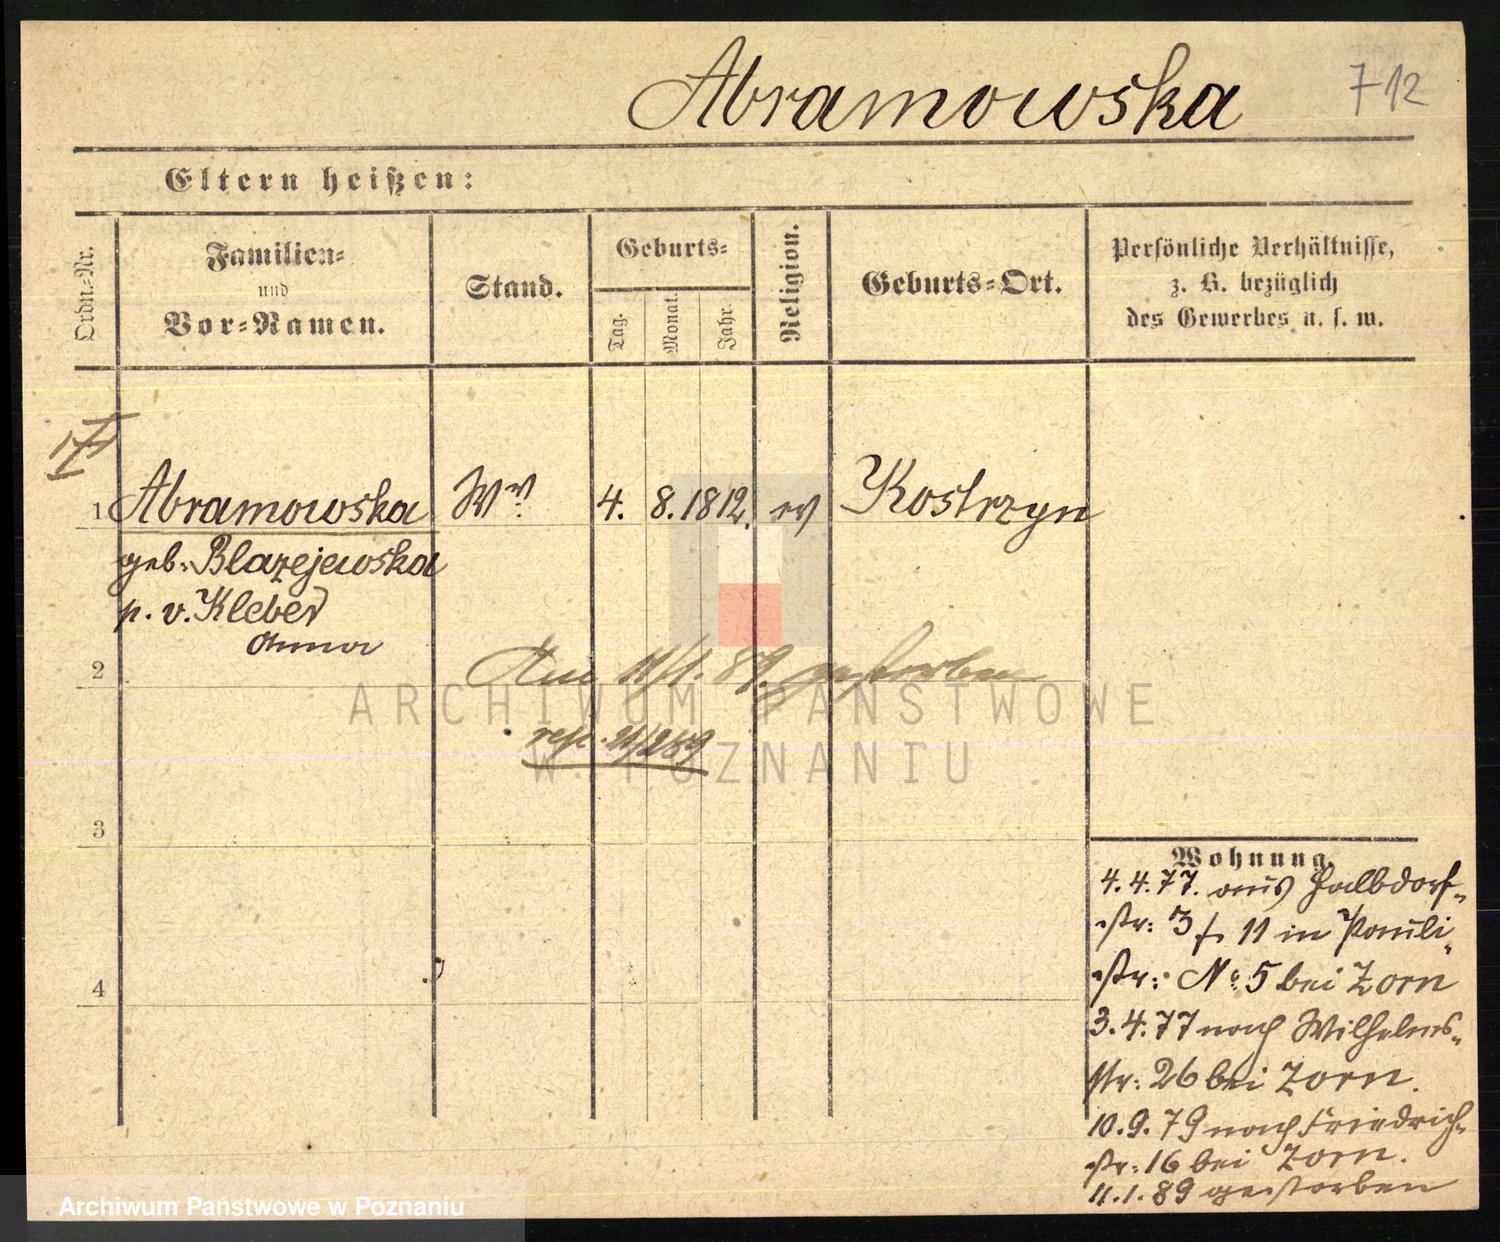 Abramowska
712
Eltern heißen:
Ordn.-Nr.
Familien-
und
Vor-Namen.
Stand.
Geburts-
Tag.
Monat.
Jahr.
Religion.
Geburts-Ort.
Persönliche Verhältnisse,
z. B. bezüglich
des Gewerbes u. s. w.
1 Abramowska Ww. 4. 8. 1812. ev Kostrzyn
geb. Blazejewska
p. v. Kleber
Anna
2
Am 11/1. 89. gestorben
ARCHIWUM PAŃSTWOWE
W POZNANIU
3
4
Wohnung.
4.4.77. aus Halbdorf-
str: 3 f 11 in Pauli-
str: No 5 bei Zorn
3.4.77 nach Wilhelms-
str: 26 bei Zorn.
10.9.79 nach Friedrich-
str: 16 bei Zorn.
11.1.89 gestorben
Archiwum Państwowe w Poznaniu